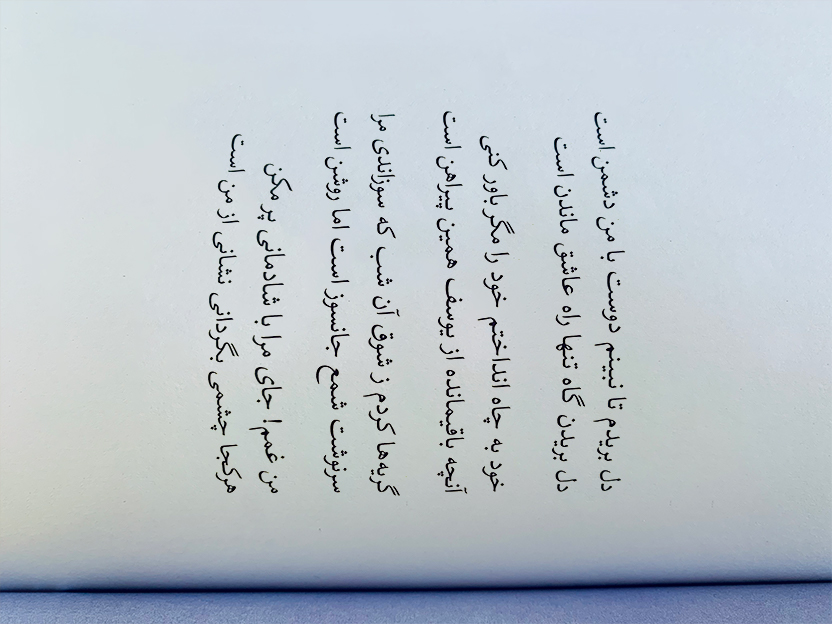 دل بریدم تا نبینم دوست با من دشمن است
دل بریدن گاه تنها راه عاشق ماندن است
خود به چاه انداختم خود را مگر باور کنی
آنچه باقیمانده از یوسف همین پیراهن است
گریه‌ها کردم ز شوق آن شب که سوزاندی مرا
سرنوشت شمع جانسوز است اما روشن است
من غمم! جای مرا با شادمانی پر مکن
هرکجا چشمی بگردانی نشانی از من است